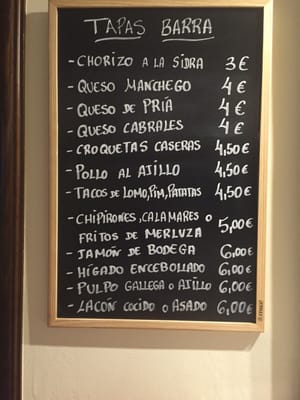 TAPAS BARRA
- CHORIZO A LA SIDRA 3 €
- QUESO MANCHEGO 4 €
- QUESO DE PRIA 4 €
- QUESO CABRALES 4 €
- CROQUETAS CASERAS 4,50€
- POLLO AL AJILLO 4,50€
- TACOS DE LOMO, PIM, PATATAS 4,50€
- CHIPIRONES, CALAMARES O
FRITOS DE MERLUZA 5,00€
- JAMÓN DE BODEGA 6,00€
- HÍGADO ENCEBOLLADO 6,00€
- PULPO GALLEGA O AJILLO 6,00€
- LACÓN COCIDO O ASADO 6,00€